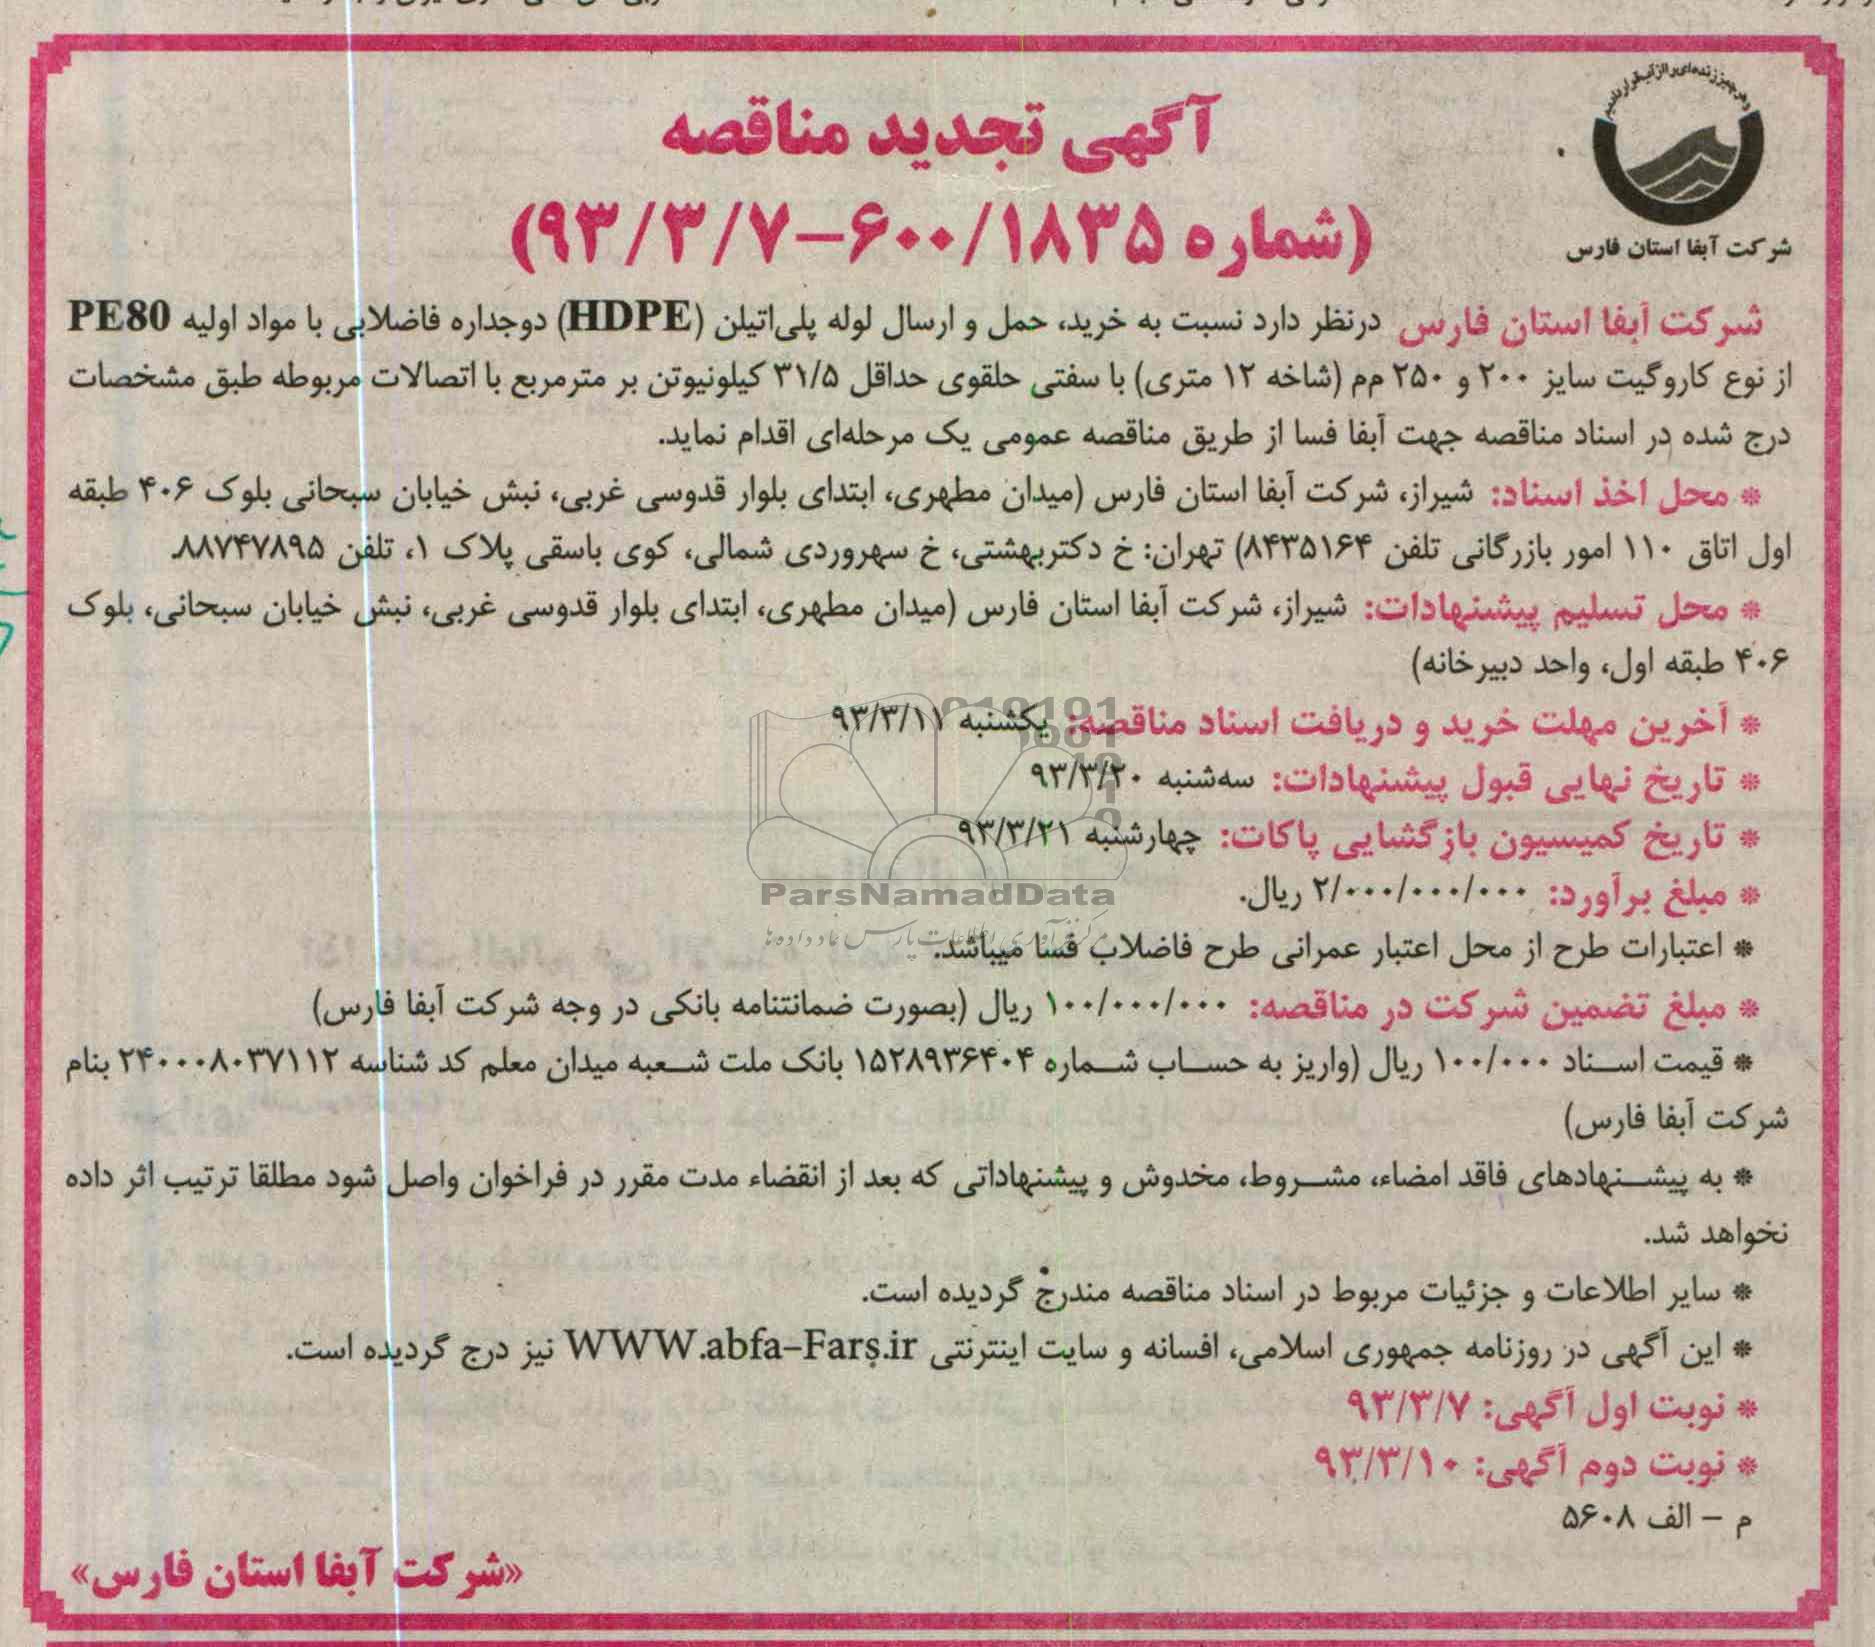 و هر چیز زنده‌ای را از آب قرار دادیم
شرکت آبفا استان فارس
آگهی تجدید مناقصه
(شماره ۶۰۰/۱۸۳۵-۹۳/۳/۷)
شرکت آبفا استان فارس درنظر دارد نسبت به خرید، حمل و ارسال لوله پلی‌اتیلن (HDPE) دوجداره فاضلابی با مواد اولیه PE80
از نوع کاروگیت سایز ۲۰۰ و ۲۵۰ مم (شاخه ۱۲ متری) با سفتی حلقوی حداقل ۳۱/۵ کیلونیوتن بر مترمربع با اتصالات مربوطه طبق مشخصات
درج شده در اسناد مناقصه جهت آبفا فسا از طریق مناقصه عمومی یک مرحله‌ای اقدام نماید.
* محل اخذ اسناد: شیراز، شرکت آبفا استان فارس (میدان مطهری، ابتدای بلوار قدوسی غربی، نبش خیابان سبحانی بلوک ۴۰۶ طبقه
اول اتاق ۱۱۰ امور بازرگانی تلفن ۸۴۳۵۱۶۴) تهران: خ دکتربهشتی، خ سهروردی شمالی، کوی باسقی پلاک ۱، تلفن ۸۸۷۴۷۸۹۵.
* محل تسلیم پیشنهادات: شیراز، شرکت آبفا استان فارس (میدان مطهری، ابتدای بلوار قدوسی غربی، نبش خیابان سبحانی، بلوک
۴۰۶ طبقه اول، واحد دبیرخانه)
* آخرین مهلت خرید و دریافت اسناد مناقصه: یکشنبه ۹۳/۳/۱۱
* تاریخ نهایی قبول پیشنهادات: سه‌شنبه ۹۳/۳/۲۰
* تاریخ کمیسیون بازگشایی پاکات: چهارشنبه ۹۳/۳/۲۱
* مبلغ برآورد: ۲/۰۰۰/۰۰۰/۰۰۰ ریال.
ParsNamadData
مرکز فرآوری اطلاعات پارس نماد داده‌ها
* اعتبارات طرح از محل اعتبار عمرانی طرح فاضلاب فسا میباشد.
* مبلغ تضمین شرکت در مناقصه: ۱۰۰/۰۰۰/۰۰۰ ریال (بصورت ضمانتنامه بانکی در وجه شرکت آبفا فارس)
* قیمت اسناد ۱۰۰/۰۰۰ ریال (واریز به حساب شماره ۱۵۲۸۹۳۶۴۰۴ بانک ملت شعبه میدان معلم کد شناسه ۲۴۰۰۰۸۰۳۷۱۱۲ بنام
شرکت آبفا فارس)
* به پیشنهادهای فاقد امضاء، مشروط، مخدوش و پیشنهاداتی که بعد از انقضاء مدت مقرر در فراخوان واصل شود مطلقا ترتیب اثر داده
نخواهد شد.
* سایر اطلاعات و جزئیات مربوط در اسناد مناقصه مندرج گردیده است.
* این آگهی در روزنامه جمهوری اسلامی، افسانه و سایت اینترنتی WWW.abfa-Fars.ir نیز درج گردیده است.
* نوبت اول آگهی: ۹۳/۳/۷
* نوبت دوم آگهی: ۹۳/۳/۱۰
م - الف ۵۶۰۸
«شرکت آبفا استان فارس»